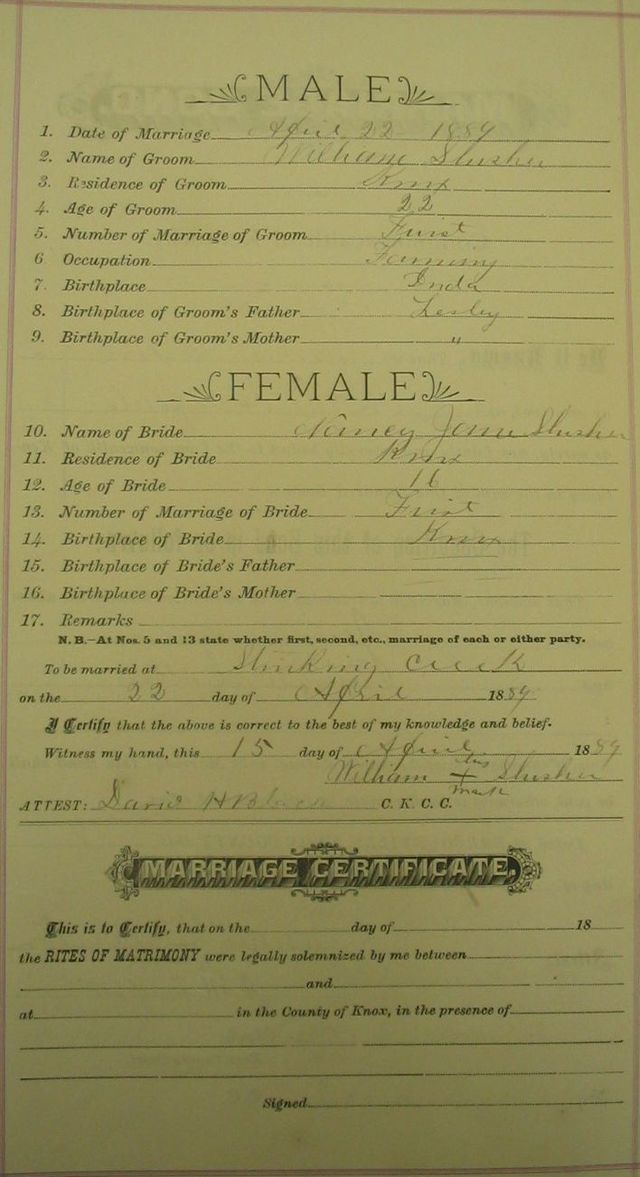 MALE
1. Date of Marriage April 22 1889
2. Name of Groom William Slusher
3. Residence of Groom Knox
4. Age of Groom 22
5. Number of Marriage of Groom First
6 Occupation Farming
7. Birthplace
8. Birthplace of Groom's Father Lesley
9. Birthplace of Groom's Mother "
FEMALE
10. Name of Bride Nancy Jane Slusher
11. Residence of Bride Knox
12. Age of Bride 16
13. Number of Marriage of Bride First
14. Birthplace of Bride Knox
15. Birthplace of Bride's Father
16. Birthplace of Bride's Mother
17. Remarks
N. B.—At Nos. 5 and 13 state whether first, second, etc., marriage of each or either party.
To be married at Stinking Creek
on the 22 day of April 1889
I Certify that the above is correct to the best of my knowledge and belief.
Witness my hand, this 15 day of April 1889
William his x mark Slusher
ATTEST: David H C. K. C. C.
MARRIAGE CERTIFICATE.
This is to Certify, that on the day of 18
the RITES OF MATRIMONY were legally solemnized by me between
and
at in the County of Knox, in the presence of
Signed